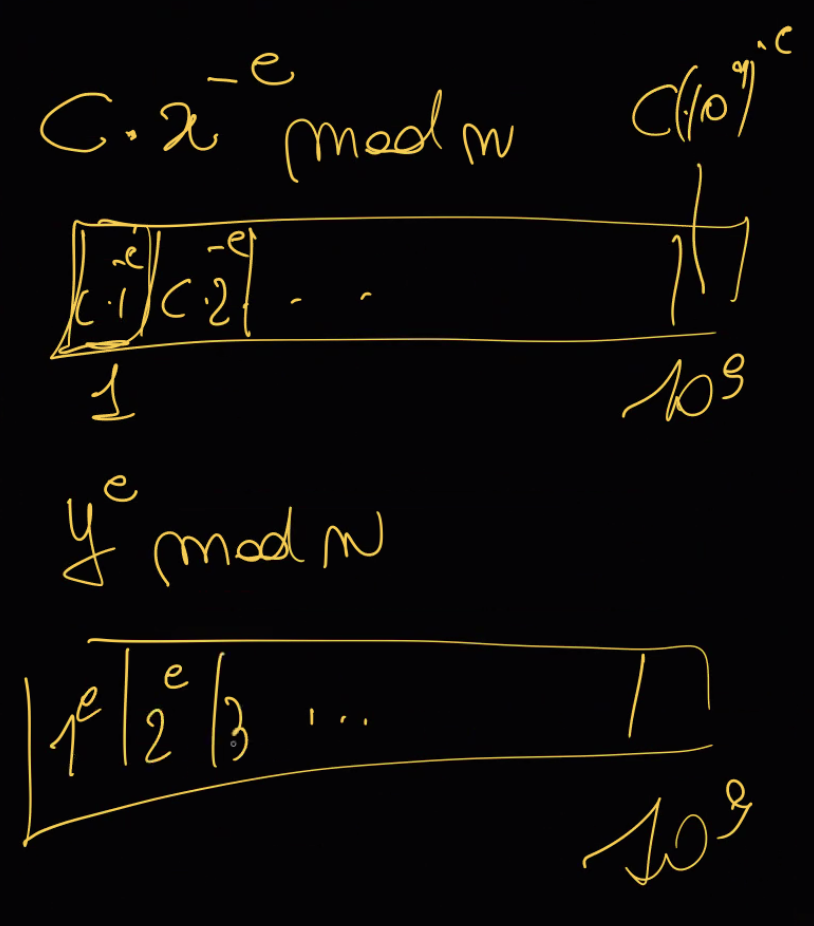 C·x^-e mod n C(10^9)^-e
C·1^-e C·2^-e . .
1 10^9
y^e mod n
1^e 2^e 3 ...
10^9